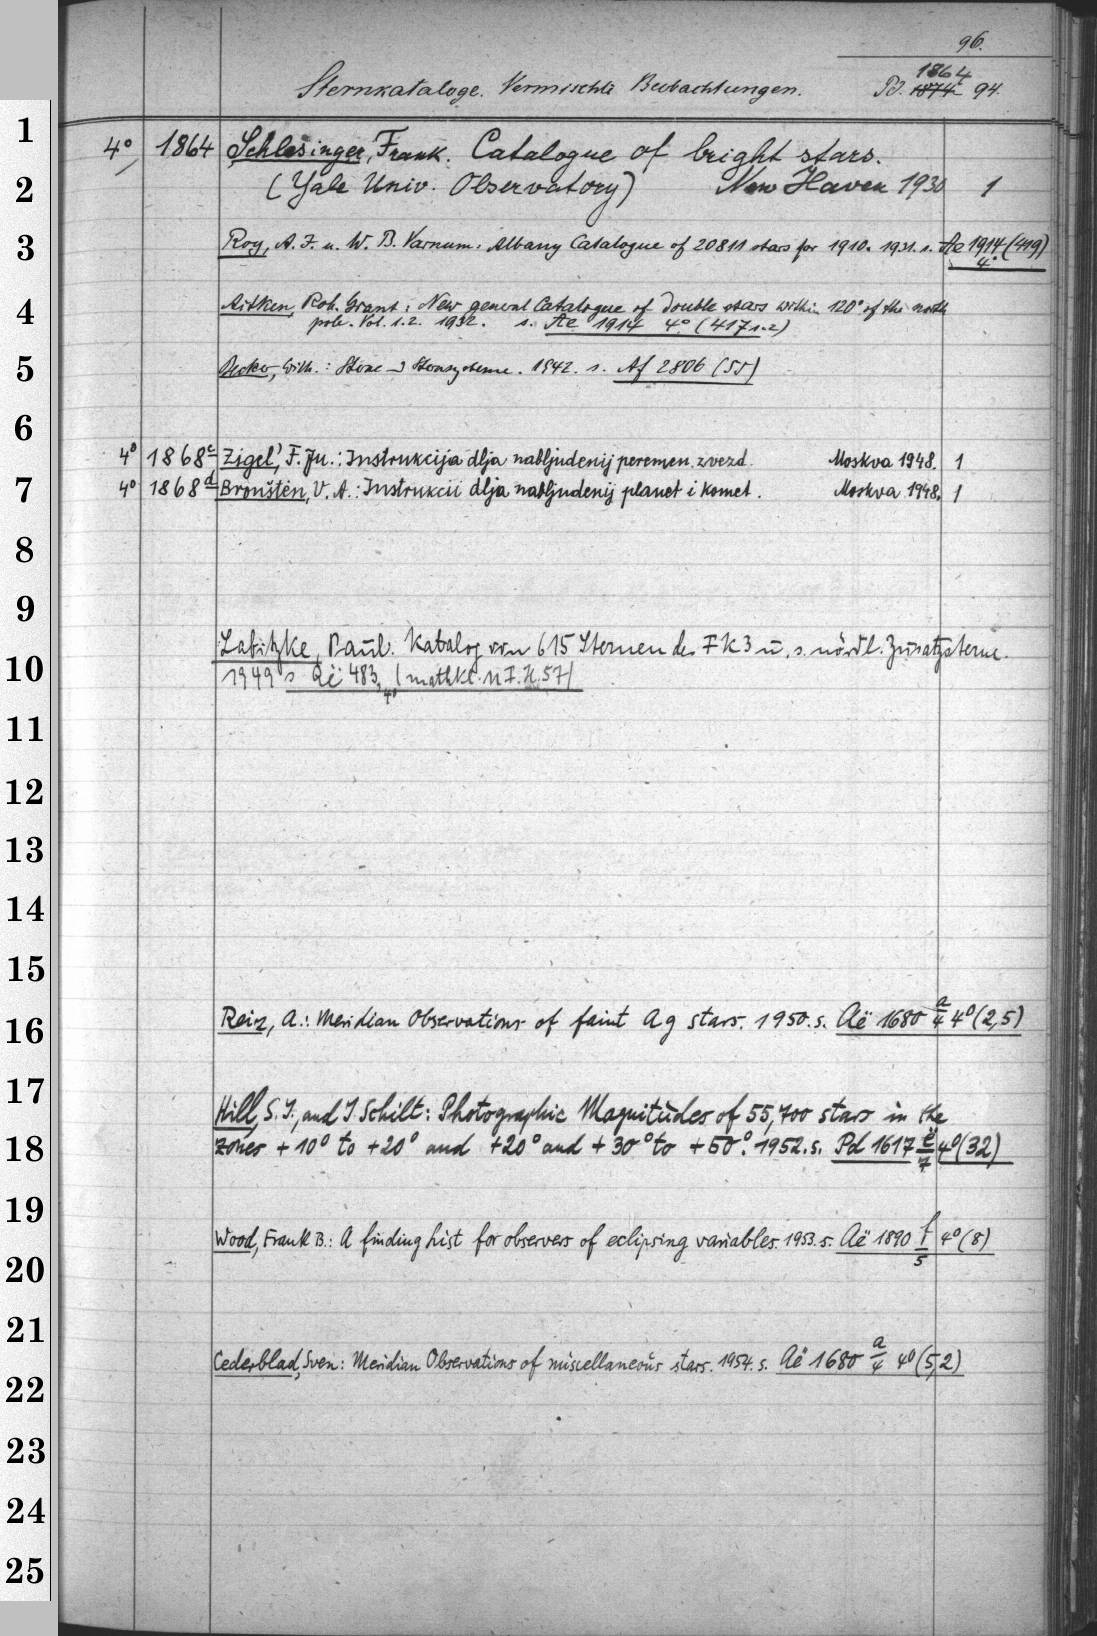 96.
1864
Sternkataloge. Vermischte Beobachtungen. Pd. 1874 94.
1
4° 1864 Schlesinger, Frank. Catalogue of bright stars.
2
(Yale Univ. Observatory) New Haven 1930 1
3
Roy, A. J. u. W. B. Varnum: Albany Catalogue of 20811 stars for 1910. 1931. s. Ae 1914 (419)
4°
4
Aitken, Rob. Grant: New general Catalogue of double stars within 120° of the north
pole. Vol. 1.2. 1932. s. Ae 1914 4° (417 1.2)
5
Becker, Wilh.: Sterne u Sternsysteme. 1942. s. Af 2806 (55)
6
4° 1868 c Zigel', F. Ju.: Instrukcija dlja nabljudenij peremen. zvezd. Moskva 1948. 1
7
4° 1868 d Bronštèn, V. A.: Instrukcii dlja nabljudenij planet i komet. Moskva 1948. 1
8
9
Labitzke, Paul. Katalog von 615 Sternen des FK3 u. s. nördl. Zusatzsterne.
10
1949 s Aë 483, 4° (mathkl. N.F. H. 57)
11
12
13
14
15
16
Reiz, A.: Meridian Observations of faint Ag stars. 1950. s. Aë 1680 a/4 4° (2,5)
17
Hill, S. J., and J. Schilt: Photographic Magnitudes of 55,700 stars in the
18
zones +10° to +20° and +20° and +30° to +50°. 1952. s. Pd 1617 ë/7 4° (32)
19
Wood, Frank B.: A finding list for observers of eclipsing variables. 1953. s. Aë 1890 f/5 4° (8)
20
21
Cederblad, Sven: Meridian Observations of miscellaneous stars. 1954. s. Aë 1680 a/4 4° (5,2)
22
23
24
25